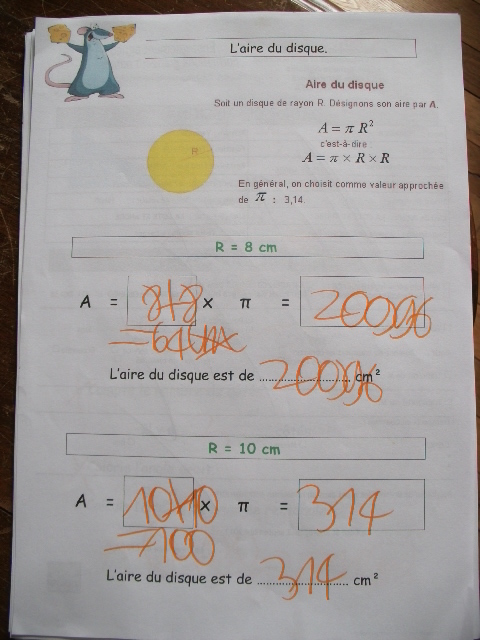 L'aire du disque.
Aire du disque
Soit un disque de rayon R. Désignons son aire par A.
A = π R²
c'est-à-dire
A = π × R × R
R
En général, on choisit comme valeur approchée
de π : 3,14.
R = 8 cm
A = 8×8 x π = 200,96
=64
L'aire du disque est de 200,96 cm²
R = 10 cm
A = 10×10 x π = 314
=100
L'aire du disque est de 314 cm²